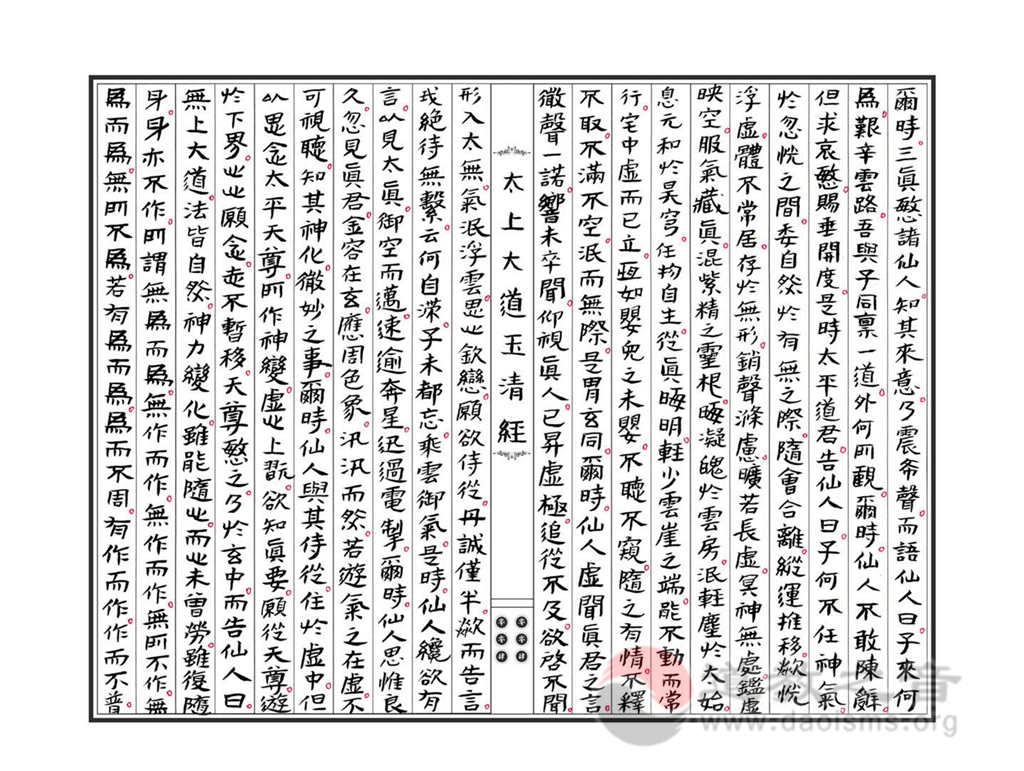 爾時三眞愍諸仙人知其來意乃震希聲而語仙人曰子來何
爲艱辛雲路吾與子同禀一道外何所觀爾時仙人不敢陳辭
但求哀愍賜垂開度是時太平道君告仙人曰子何不任神氣
於忽恍之間委自然於有無之際隨會合離縱運推移欻恍
浮虛體不常居存於無形銷聲滌慮曠若長虛冥神無處鑑虛
映空服氣藏眞混紫精之靈根晦凝魄於雲房泯輕塵於太始
息元和於昊穹任均自主從眞晦明輕步雲崖之端能不動而常
行宅中虛而已立極如嬰兒之未嬰不聽不窺隨之有情不釋
不取不滿不空泯而無際是胃玄同爾時仙人虛聞眞君之言
微聲一諾響未卒聞仰視眞人已昇虛極追從不及欲啓不聞
太上大道玉清經
形入太無氣泯浮雲思心欽戀願欲侍從丹誠僅半欻而告言
我絕待無繫云何自滯子未都忘乘雲御氣是時仙人纔欲有
言以見太眞御空而邁速逾奔星迅過電掣爾時仙人思惟良
久忽見眞君金容在玄應周色象汎汎而然若遊氣之在虛不
可視聽知其神化微妙之事爾時仙人與其侍從住於虛中但
以思念太平天尊所作神變虛心上翫欲知眞要願從天尊遊
於下界心心願念志不暫移天尊愍之乃於玄中而告仙人曰
無上大道法皆自然神力變化雖能隨心而心未曾勞雖復隨
身身亦不作所謂無爲而爲無作而作無作而作無所不作無
爲而爲無所不爲若有爲而爲爲而不周有作而作作而不普
道教之音
www.daoisms.org